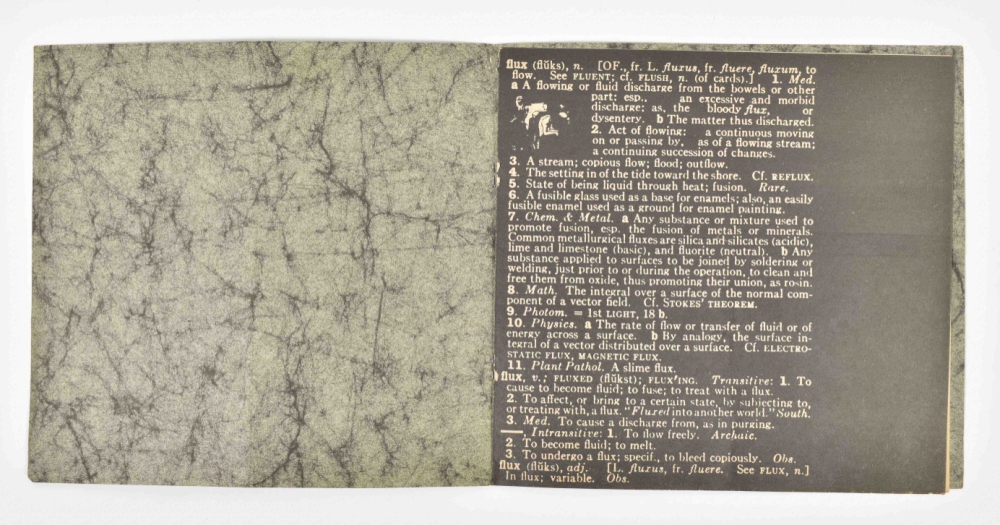 flux (flŭks), n. [OF., fr. L. fluxus, fr. fluere, fluxum, to
flow. See FLUENT; cf. FLUSH, n. (of cards).] 1. Med.
a A flowing or fluid discharge from the bowels or other
part; esp., an excessive and morbid
discharge: as, the bloody flux, or
dysentery. b The matter thus discharged.
2. Act of flowing: a continuous moving
on or passing by, as of a flowing stream;
a continuing succession of changes.
3. A stream; copious flow; flood; outflow.
4. The setting in of the tide toward the shore. Cf. REFLUX.
5. State of being liquid through heat; fusion. Rare.
6. A fusible glass used as a base for enamels; also, an easily
fusible enamel used as a ground for enamel painting.
7. Chem. & Metal. a Any substance or mixture used to
promote fusion, esp. the fusion of metals or minerals.
Common metallurgical fluxes are silica and silicates (acidic),
lime and limestone (basic), and fluorite (neutral). b Any
substance applied to surfaces to be joined by soldering or
welding, just prior to or during the operation, to clean and
free them from oxide, thus promoting their union, as rosin.
8. Math. The integral over a surface of the normal com-
ponent of a vector field. Cf. STOKES' THEOREM.
9. Photom. = 1st LIGHT, 18 b.
10. Physics. a The rate of flow or transfer of fluid or of
energy across a surface. b By analogy, the surface in-
tegral of a vector distributed over a surface. Cf. ELECTRO-
STATIC FLUX, MAGNETIC FLUX.
11. Plant Pathol. A slime flux.
flux, v.; FLUXED (flŭkst); FLUX'ING. Transitive: 1. To
cause to become fluid; to fuse; to treat with a flux.
2. To affect, or bring to a certain state, by subjecting to,
or treating with, a flux. "Fluxed into another world." South.
3. Med. To cause a discharge from, as in purging.
——, Intransitive: 1. To flow freely. Archaic.
2. To become fluid; to melt.
3. To undergo a flux; specif., to bleed copiously. Obs.
flux (flŭks), adj. [L. fluxus, fr. fluere. See FLUX, n.]
In flux; variable. Obs.